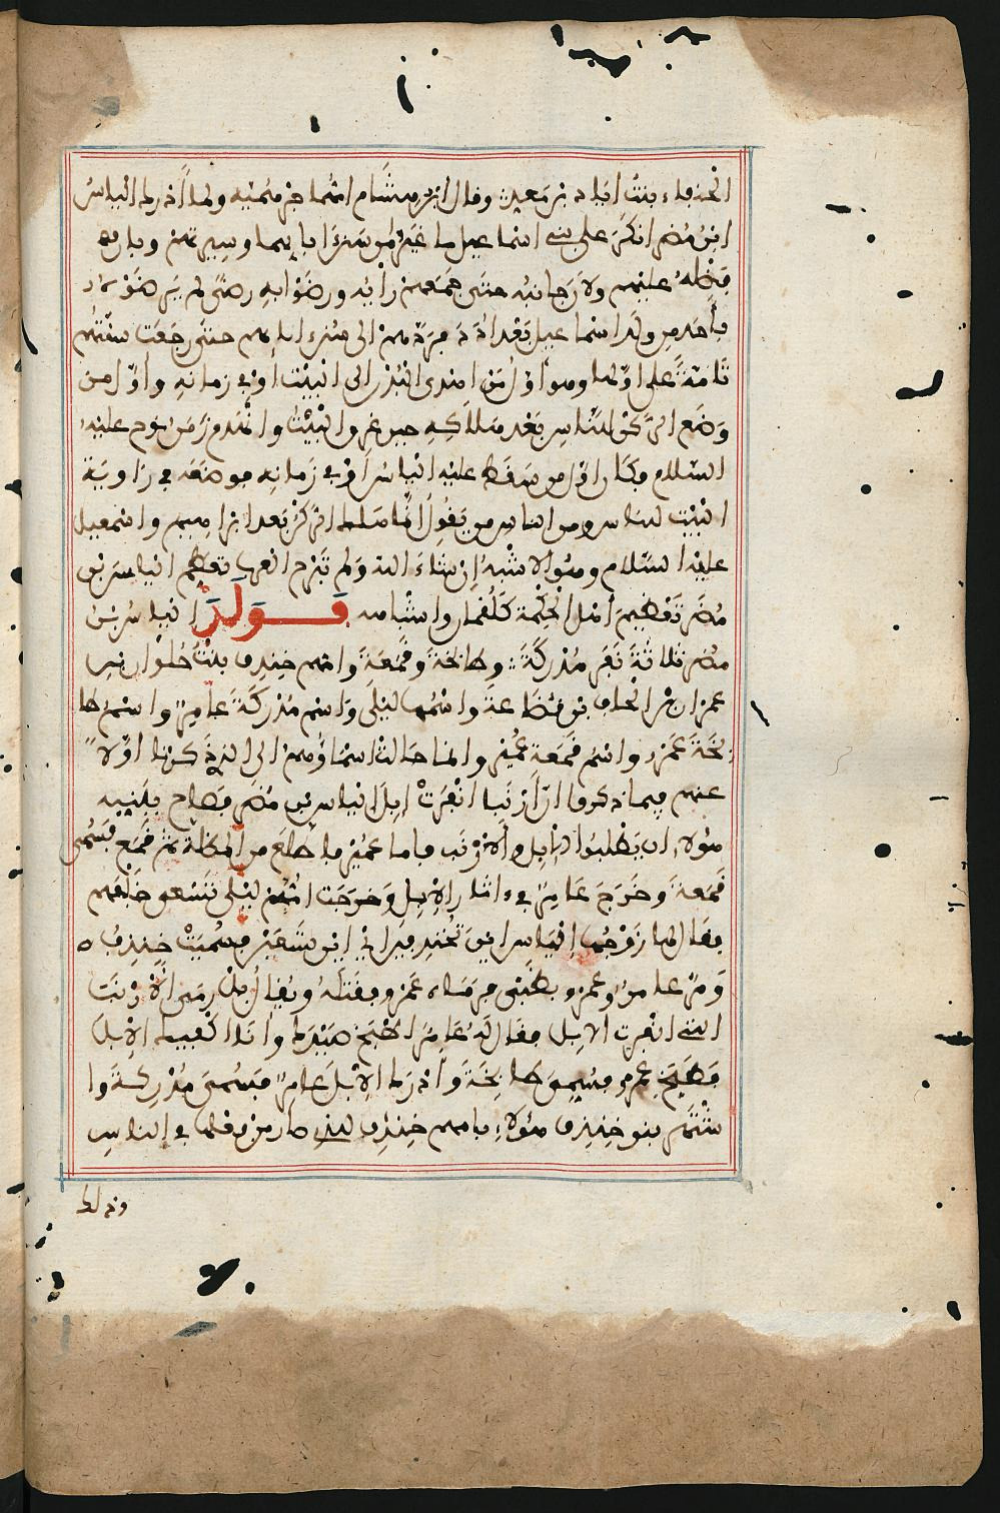 الحنفاء بنت اياد بن معد وقال ابن هشام انها جرهمية ولما ادرك الياس
ابن مضر انكر على بني اسماعيل ما غيروا من سنن ابائهم وسيرتهم وبان
فضله عليهم ولان جانبه حتى جمعهم رأيه ورضوا به رضى لم يرضوه
باحد من ولد اسماعيل بعد ادد فردهم الى سنن ابائهم حتى رجعت سنتهم
تامة على اولها وهو أول من اهدى البدن الى البيت او في زمانه وأول من
وضع الركن للناس بعد هلاكه حين غرق البيت وانهدم زمن نوح عليه
السلام فكان اول من سقط عليه الياس او في زمانه فوضعه في زاوية
البيت للناس ومن الناس من يقول انما سلط الركن بعد ابراهيم واسمعيل
عليه السلام وهو الاشبه إن شاء الله ولم تبرح العرب تعظم الياس بن
مضر تعظيم أهل الحكمة كلقمان واشباهه فولد الياس بن
مضر ثلاثة نفر مدركة وطابخة وقمعة وامهم خندف بنت حلوان بن
عمران بن الحاف بن قضاعة واسمها ليلى واسم مدركة عامر واسم طا
بخة عمرو واسم قمعة عمير وانما حالت اسماؤهم الى الذي ذكرنا اولا
عنهم فيما ذكروا ان أرنبا انفرت إبل الياس بن مضر فصاح ببنيه
هؤلاء ان يطلبوا الابل والارنب فاما عمير فاطلع من المظلة ثم قمع فسمي
قمعة وخرج عامر في اثار الابل وخرجت امهم ليلى تسعى خلفهم
فقال لها زوجها الياس اين تخندفين
ومر عامر وعمرو بظبي فرماه عمرو فقتله ويقال بل رمى الأرنب
التي انفرت الابل فقال له عامر اطبخ صيدك وانا اكفيك الابل
فطبخ عمرو فسمي طابخة وأدرك الابل عامر فسمي مدركة وا
شتهر بنو خندف هؤلاء بامهم خندف للذي صار من فعلها في الناس
وذلك